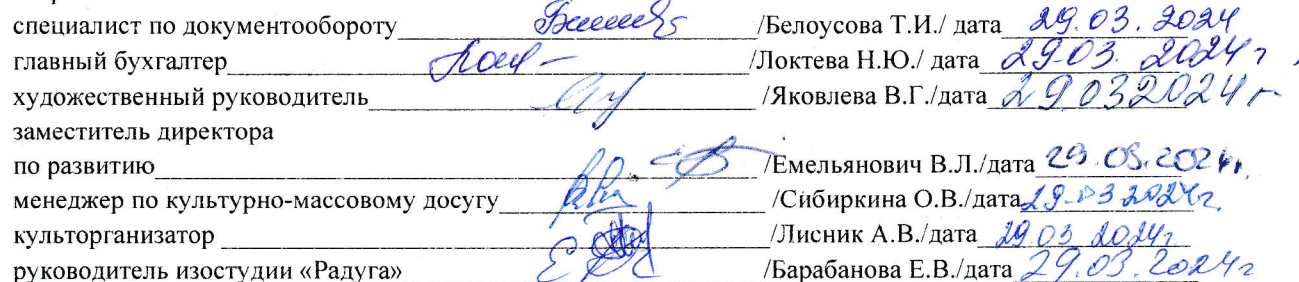 специалист по документообороту /Белоусова Т.И./ дата 29.03.2024
главный бухгалтер /Локтева Н.Ю./ дата 29.03.2024 г
художественный руководитель /Яковлева В.Г./дата 29032024 г
заместитель директора
по развитию /Емельянович В.Л./дата 29.03.2024г.
менеджер по культурно-массовому досугу /Сибиркина О.В./дата 29.03 2024г.
культорганизатор /Лисник А.В./дата 29 03 2024г
руководитель изостудии «Радуга» /Барабанова Е.В./дата 29.03.2024г